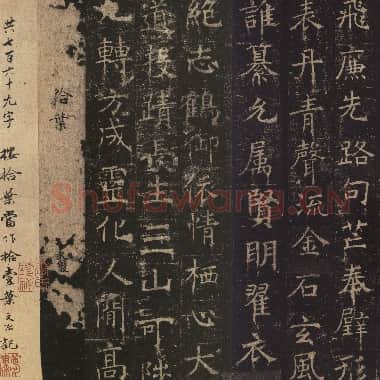 飛廉先路句芒奉璧形
表丹青聲流金石玄風
誰纂允属賢明翟衣
絕志鶴御依情栖心大
道投蹟長生三山可陟
九轉方成靈化人間高
拾葉
共七百六十九字 拾葉當作拾壹葉文治記
Shufawang.CN